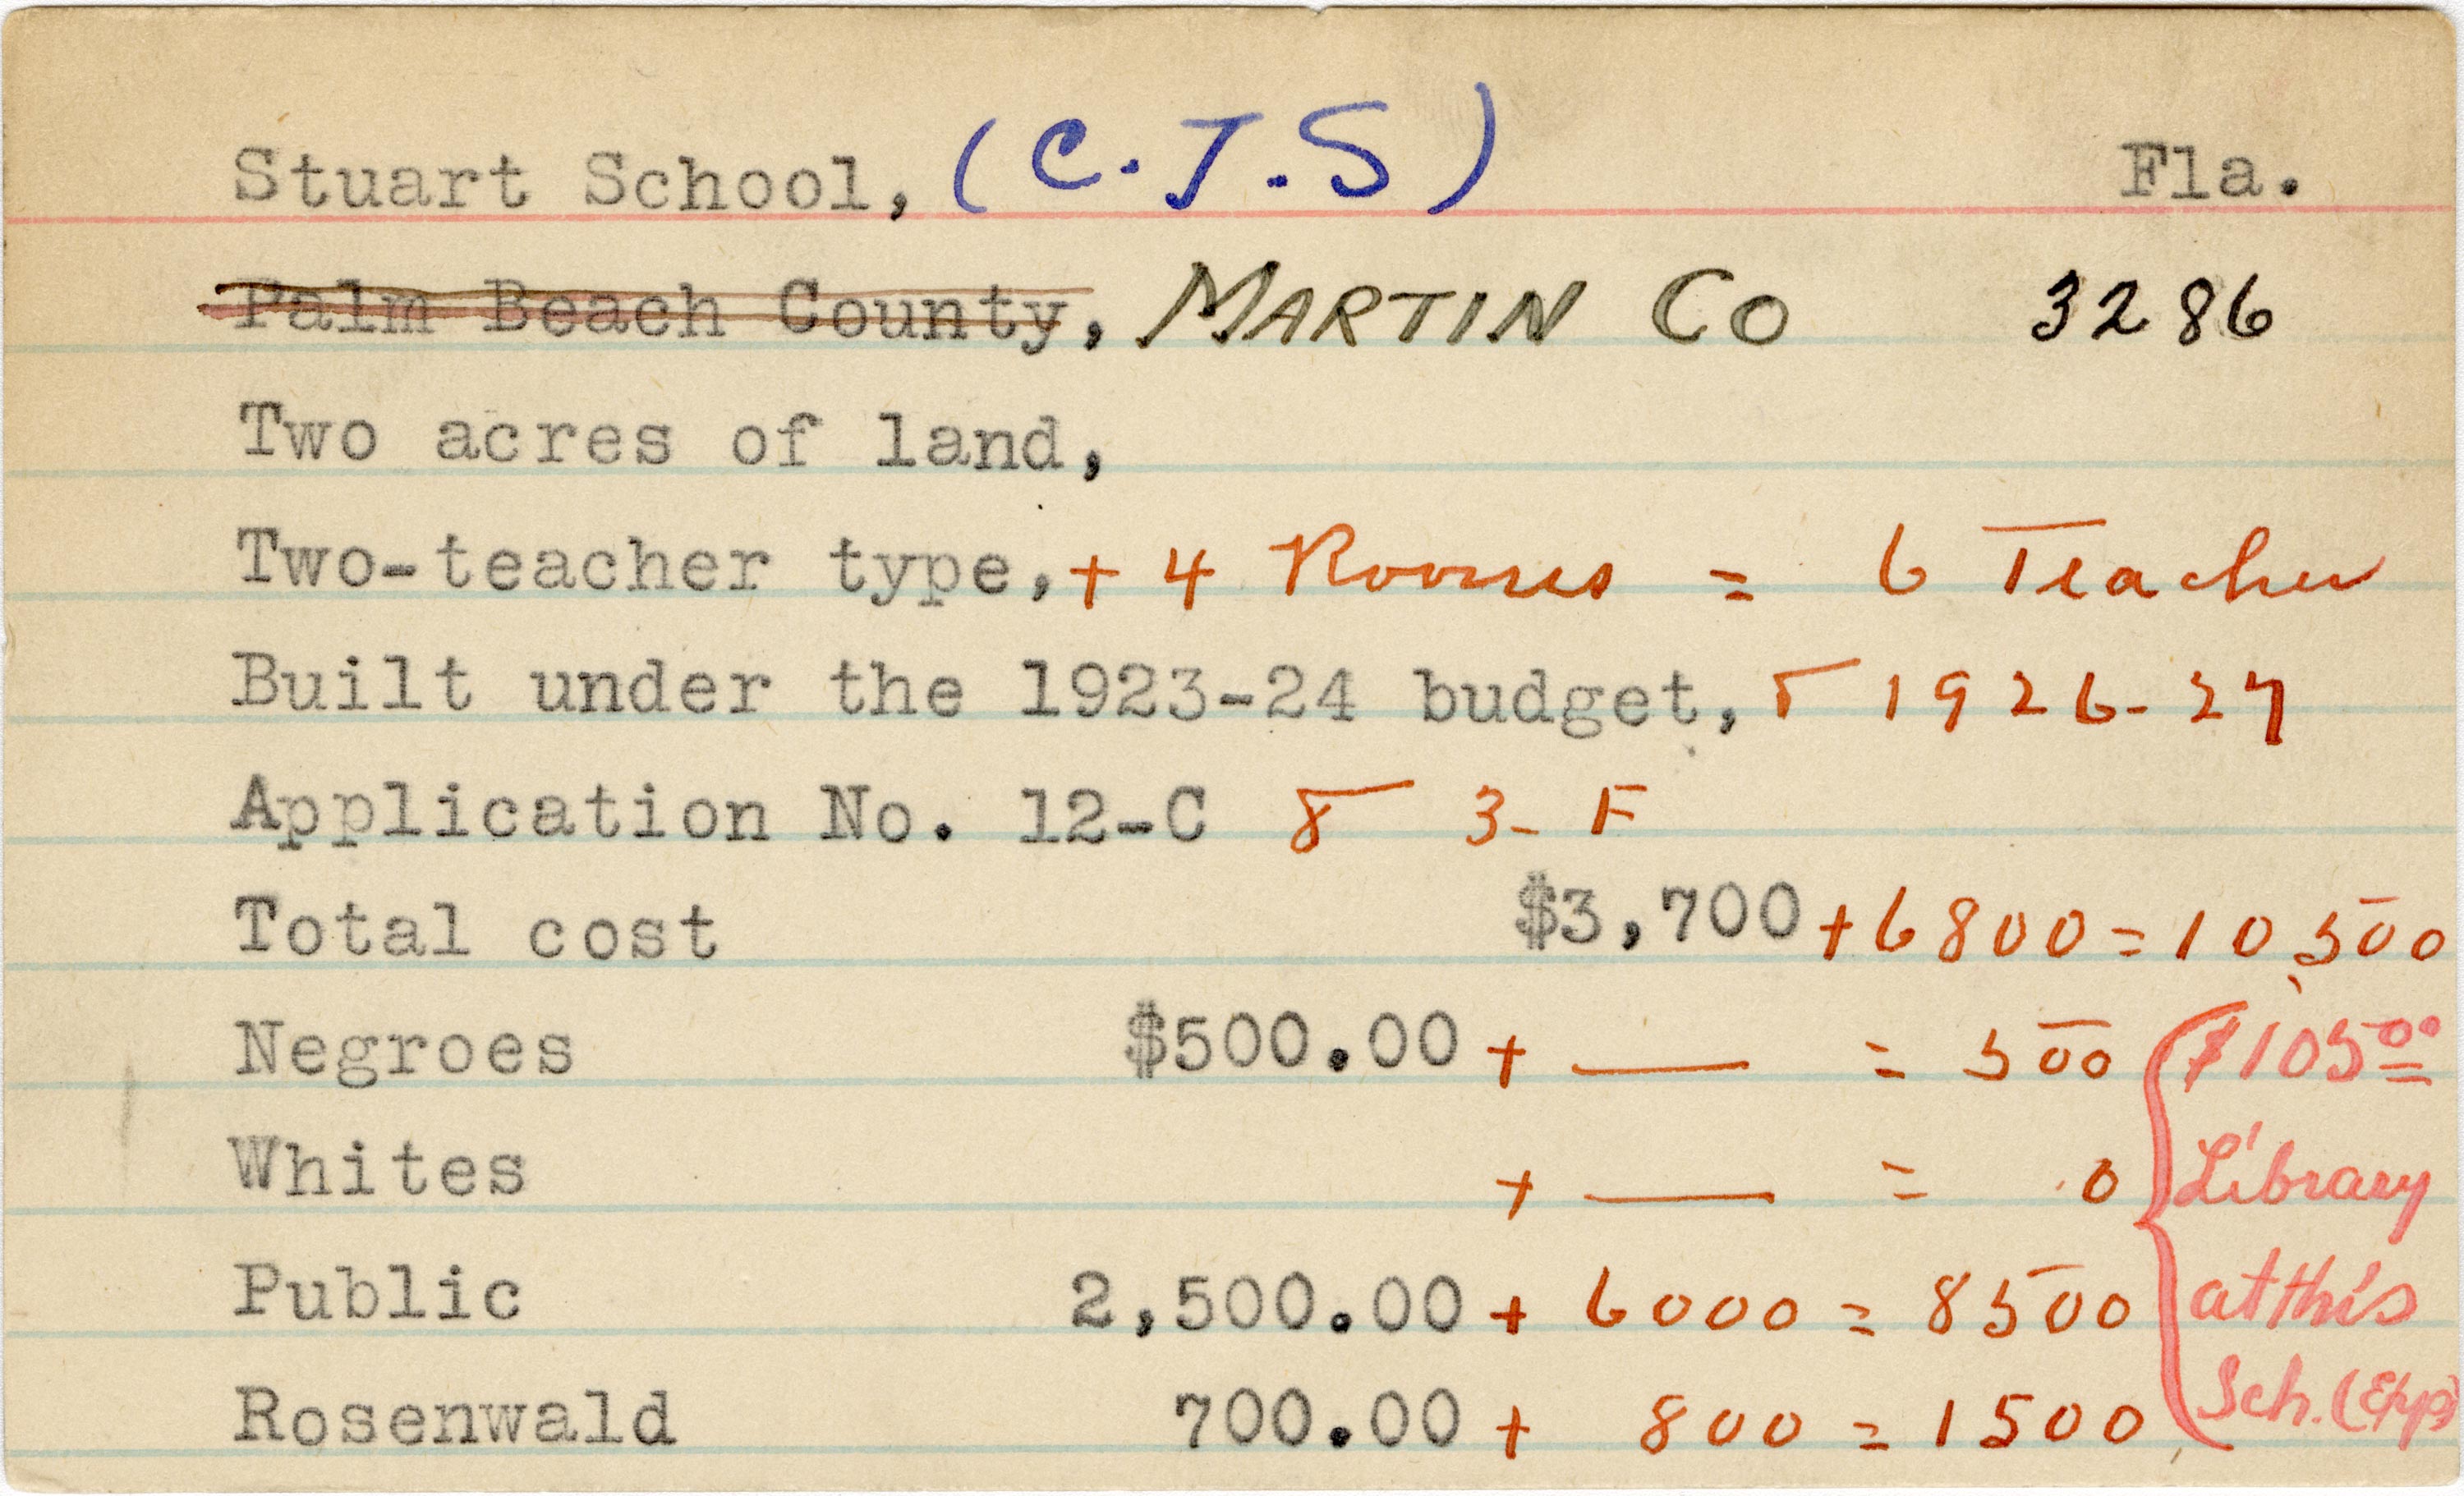 Stuart School, (C.J.S) Fla.
Palm Beach County, MARTIN CO 3286
Two acres of land,
Two-teacher type, + 4 Rooms = 6 Teacher
Built under the 1923-24 budget, & 1926-27
Application No. 12-C & 3-F
Total cost $3,700 + 6800 = 10,500
Negroes $500.00 + — = 500 $105.00
Whites + — = 0 Library
Public 2,500.00 + 6000 = 8500 at this
Rosenwald 700.00 + 800 = 1500 Sch.